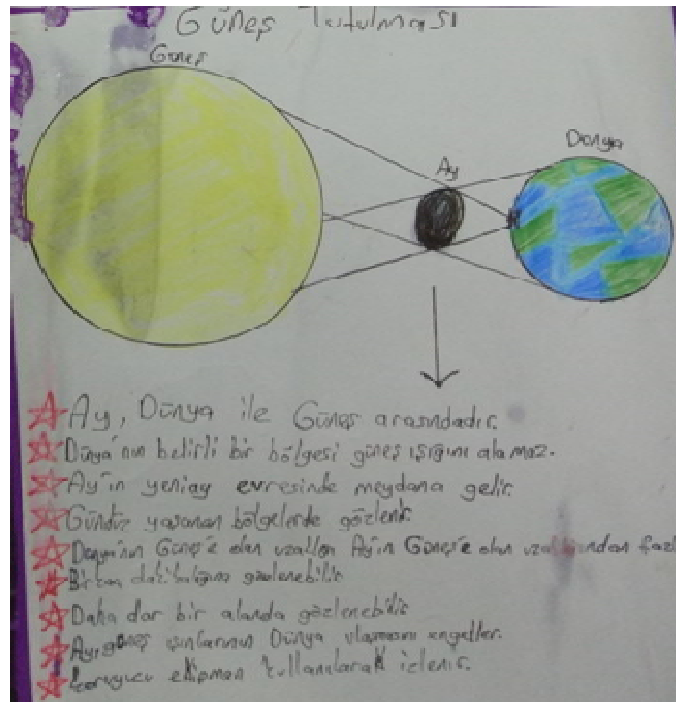 Güneş Tutulması
Güneş
Ay
Dünya
Ay, Dünya ile Güneş arasındadır.
Dünya'nın belirli bir bölgesi güneş ışığını alamaz.
Ay'ın yeniay evresinde meydana gelir.
Gündüz yaşanan bölgelerde gözlenir.
Dünya'nın Güneş'e olan uzaklığı Ay'ın Güneş'e olan uzaklığından fazl
Birkaç dakikalığına gözlenebilir
Daha dar bir alanda gözlenebilir
Ay, güneş ışınlarının Dünya ulaşmasını engeller.
Koruyucu ekipman kullanılarak izlenir.